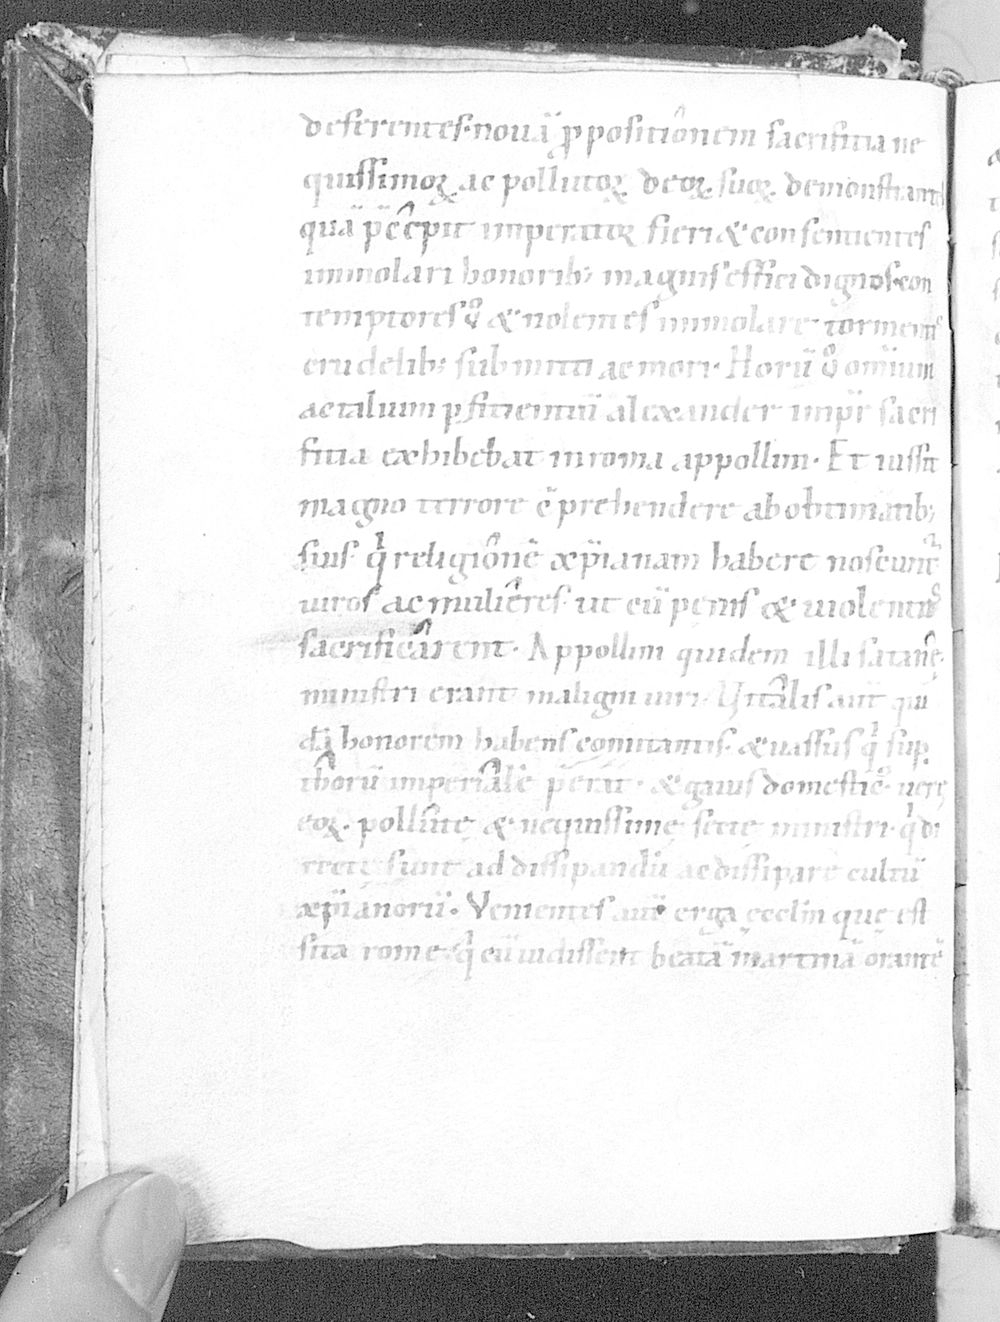 deferentes· nouā ꝓpositionem sacrifitia ne
quissimoꝝ ac pollutoꝝ deoꝝ suoꝝ demonstrantē
quā p̄cēpit imperatoꝝ fieri & consentientes
immolari honorib; magnis effici dignos· con
temptores ū & nolentes immolare tormentis
crudelib; submitti ac mori· Horū ū omnium
ac talium ꝓfitientiū alexander imp̄r sacri
fitia exhibebat in roma appollini· Et iussit
magno terrore cōprehendere ab obtimatib;
suis· qⁱ religionē xp̄ianam habere noscunt̄
uiros ac mulieres· ut eū penis & uiolentiis
sacrificarent· Appollini quidem illi satanę·
ministri erant maligni uiri· Uitalis aut̄ qui
dā honorem habens comitatus· & uassus qⁱ sup
thorū imperialē p̄erat· & gaius domesticꝰ· uere
eoꝝ· pollutę & nequissimę sectę ministri· qⁱ di
recti sunt ad dissipandū ac dissipare cultū
xp̄ianorū· Venientes aut̄ erga ęcclīn quę est
sita rome· qⁱ cū uidissent beatā martinā orantē